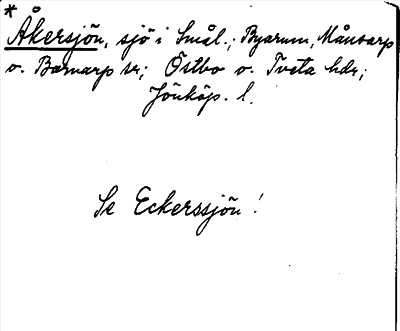 *
Åkersjön, sjö i Smål.; Byarum, Månsarp
o. Barnarp sr; Östbo o. Tveta hdr;
Jönköp. l.
Se Eckerssjön!